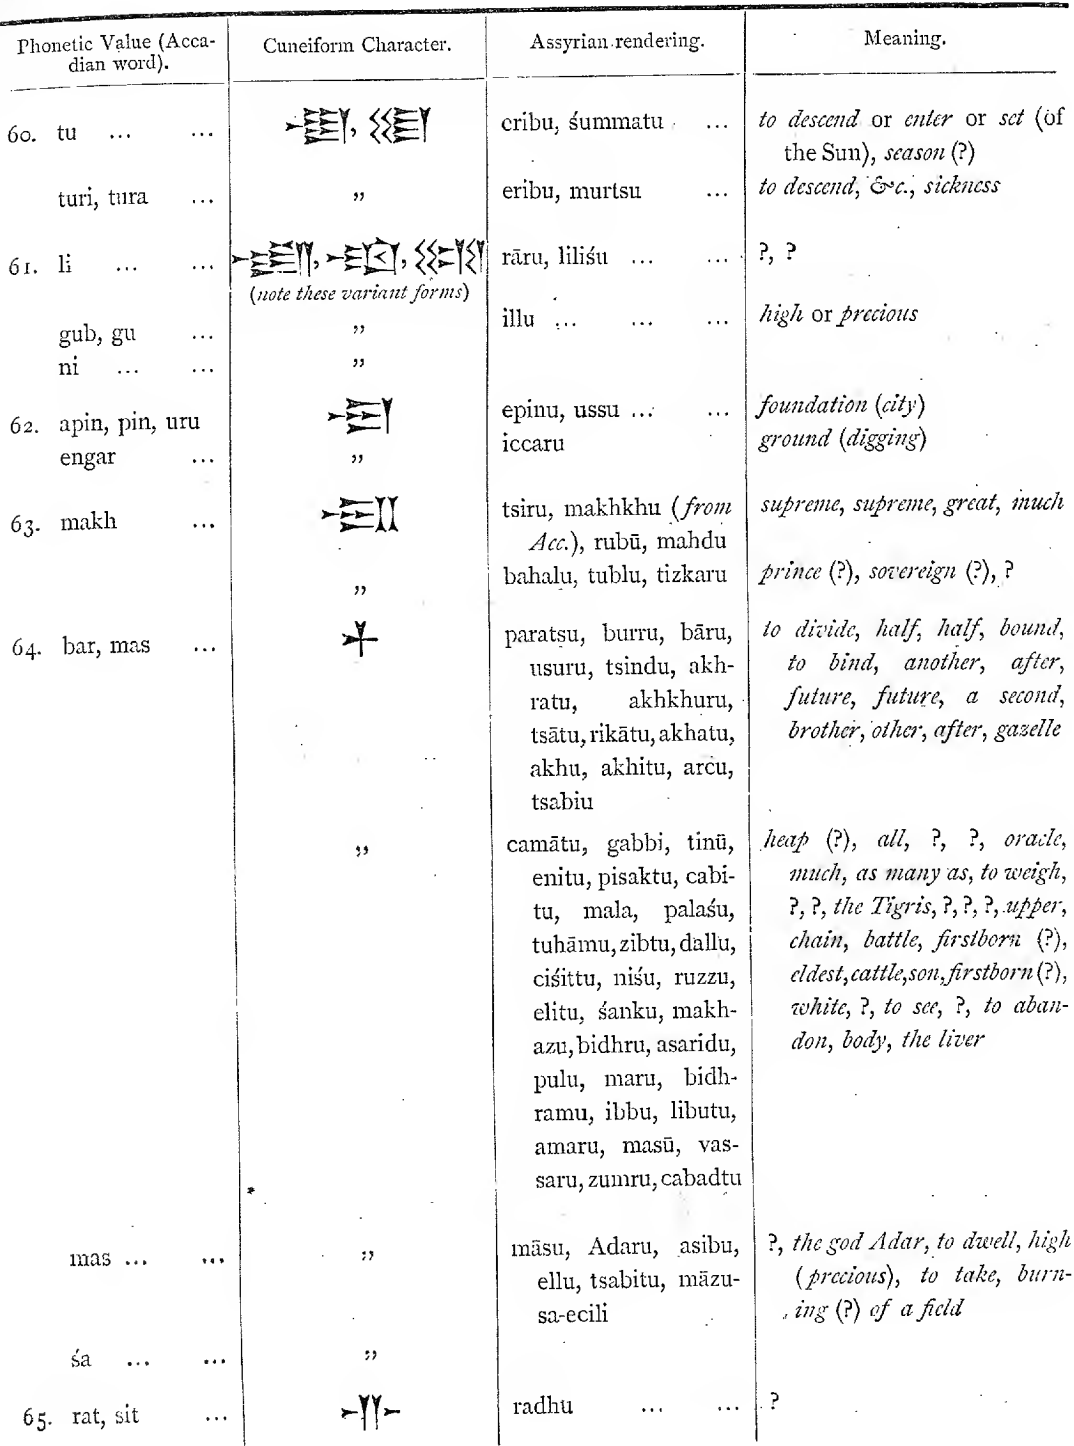 Phonetic Value (Acca-
dian word).
Cuneiform Character.
Assyrian rendering.
Meaning.
60. tu ... ...
𒌅,
eribu, śummatu ...
to descend or enter or set (of
the Sun), season (?)
turi, tura ...
„
eribu, murtsu ...
to descend, &c., sickness
61. li ... ...
𒇷,
(note these variant forms)
rāru, liliśu ... ...
?, ?
gub, gu ...
„
illu ... ... ...
high or precious
ni ... ...
„
62. apin, pin, uru
𒀳
epinu, ussu ... ...
foundation (city)
engar ...
„
iccaru
ground (digging)
63. makh ...
𒈤
tsiru, makhkhu (from
Acc.), rubū, mahdu
supreme, supreme, great, much
„
bahalu, tublu, tizkaru
prince (?), sovereign (?), ?
64. bar, mas ...
𒁇
paratsu, burru, bāru,
usuru, tsindu, akh-
ratu, akhkhuru,
tsātu, rikātu, akhatu,
akhu, akhitu, arcu,
tsabiu
to divide, half, half, bound,
to bind, another, after,
future, future, a second,
brother, other, after, gazelle
„
camātu, gabbi, tinū,
enitu, pisaktu, cabi-
tu, mala, palaśu,
tuhāmu, zibtu, dallu,
ciśittu, niśu, ruzzu,
elitu, śanku, makh-
azu, bidhru, asaridu,
pulu, maru, bidh-
ramu, ibbu, libutu,
amaru, masū, vas-
saru, zumru, cabadtu
heap (?), all, ?, ?, oracle,
much, as many as, to weigh,
?, ?, the Tigris, ?, ?, ?, upper,
chain, battle, firstborn (?),
eldest, cattle, son, firstborn (?),
white, ?, to see, ?, to aban-
don, body, the liver
mas ... ...
„
māsu, Adaru, asibu,
ellu, tsabitu, māzu-
sa-ecili
?, the god Adar, to dwell, high
(precious), to take, burn-
ing (?) of a field
śa ... ...
„
65. rat, sit ...
radhu ... ...
?